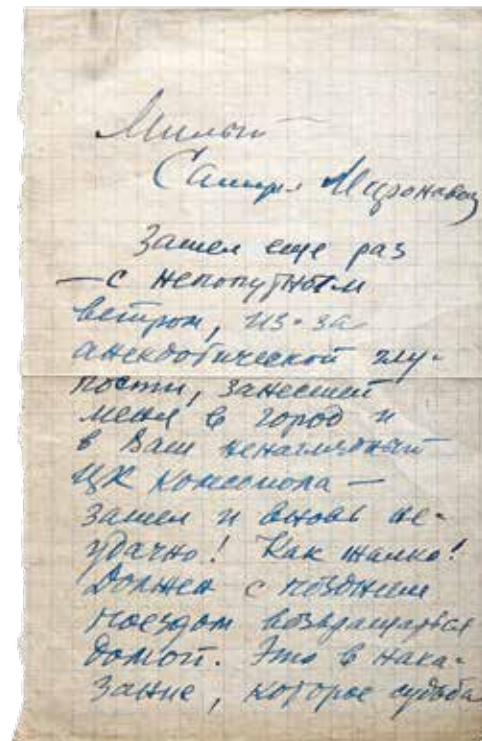 Милый
Самуил Миронович
Зашел еще раз
— с непопутным
ветром, из-за
анекдотической глу-
пости, занесшей
меня в город и
в Ваш ненаглядный
ЦК комсомола —
зашел и вновь не-
удачно! Как жалко!
Должен с поздним
поездом возвращаться
домой. Это в нака-
зание, которое судьба